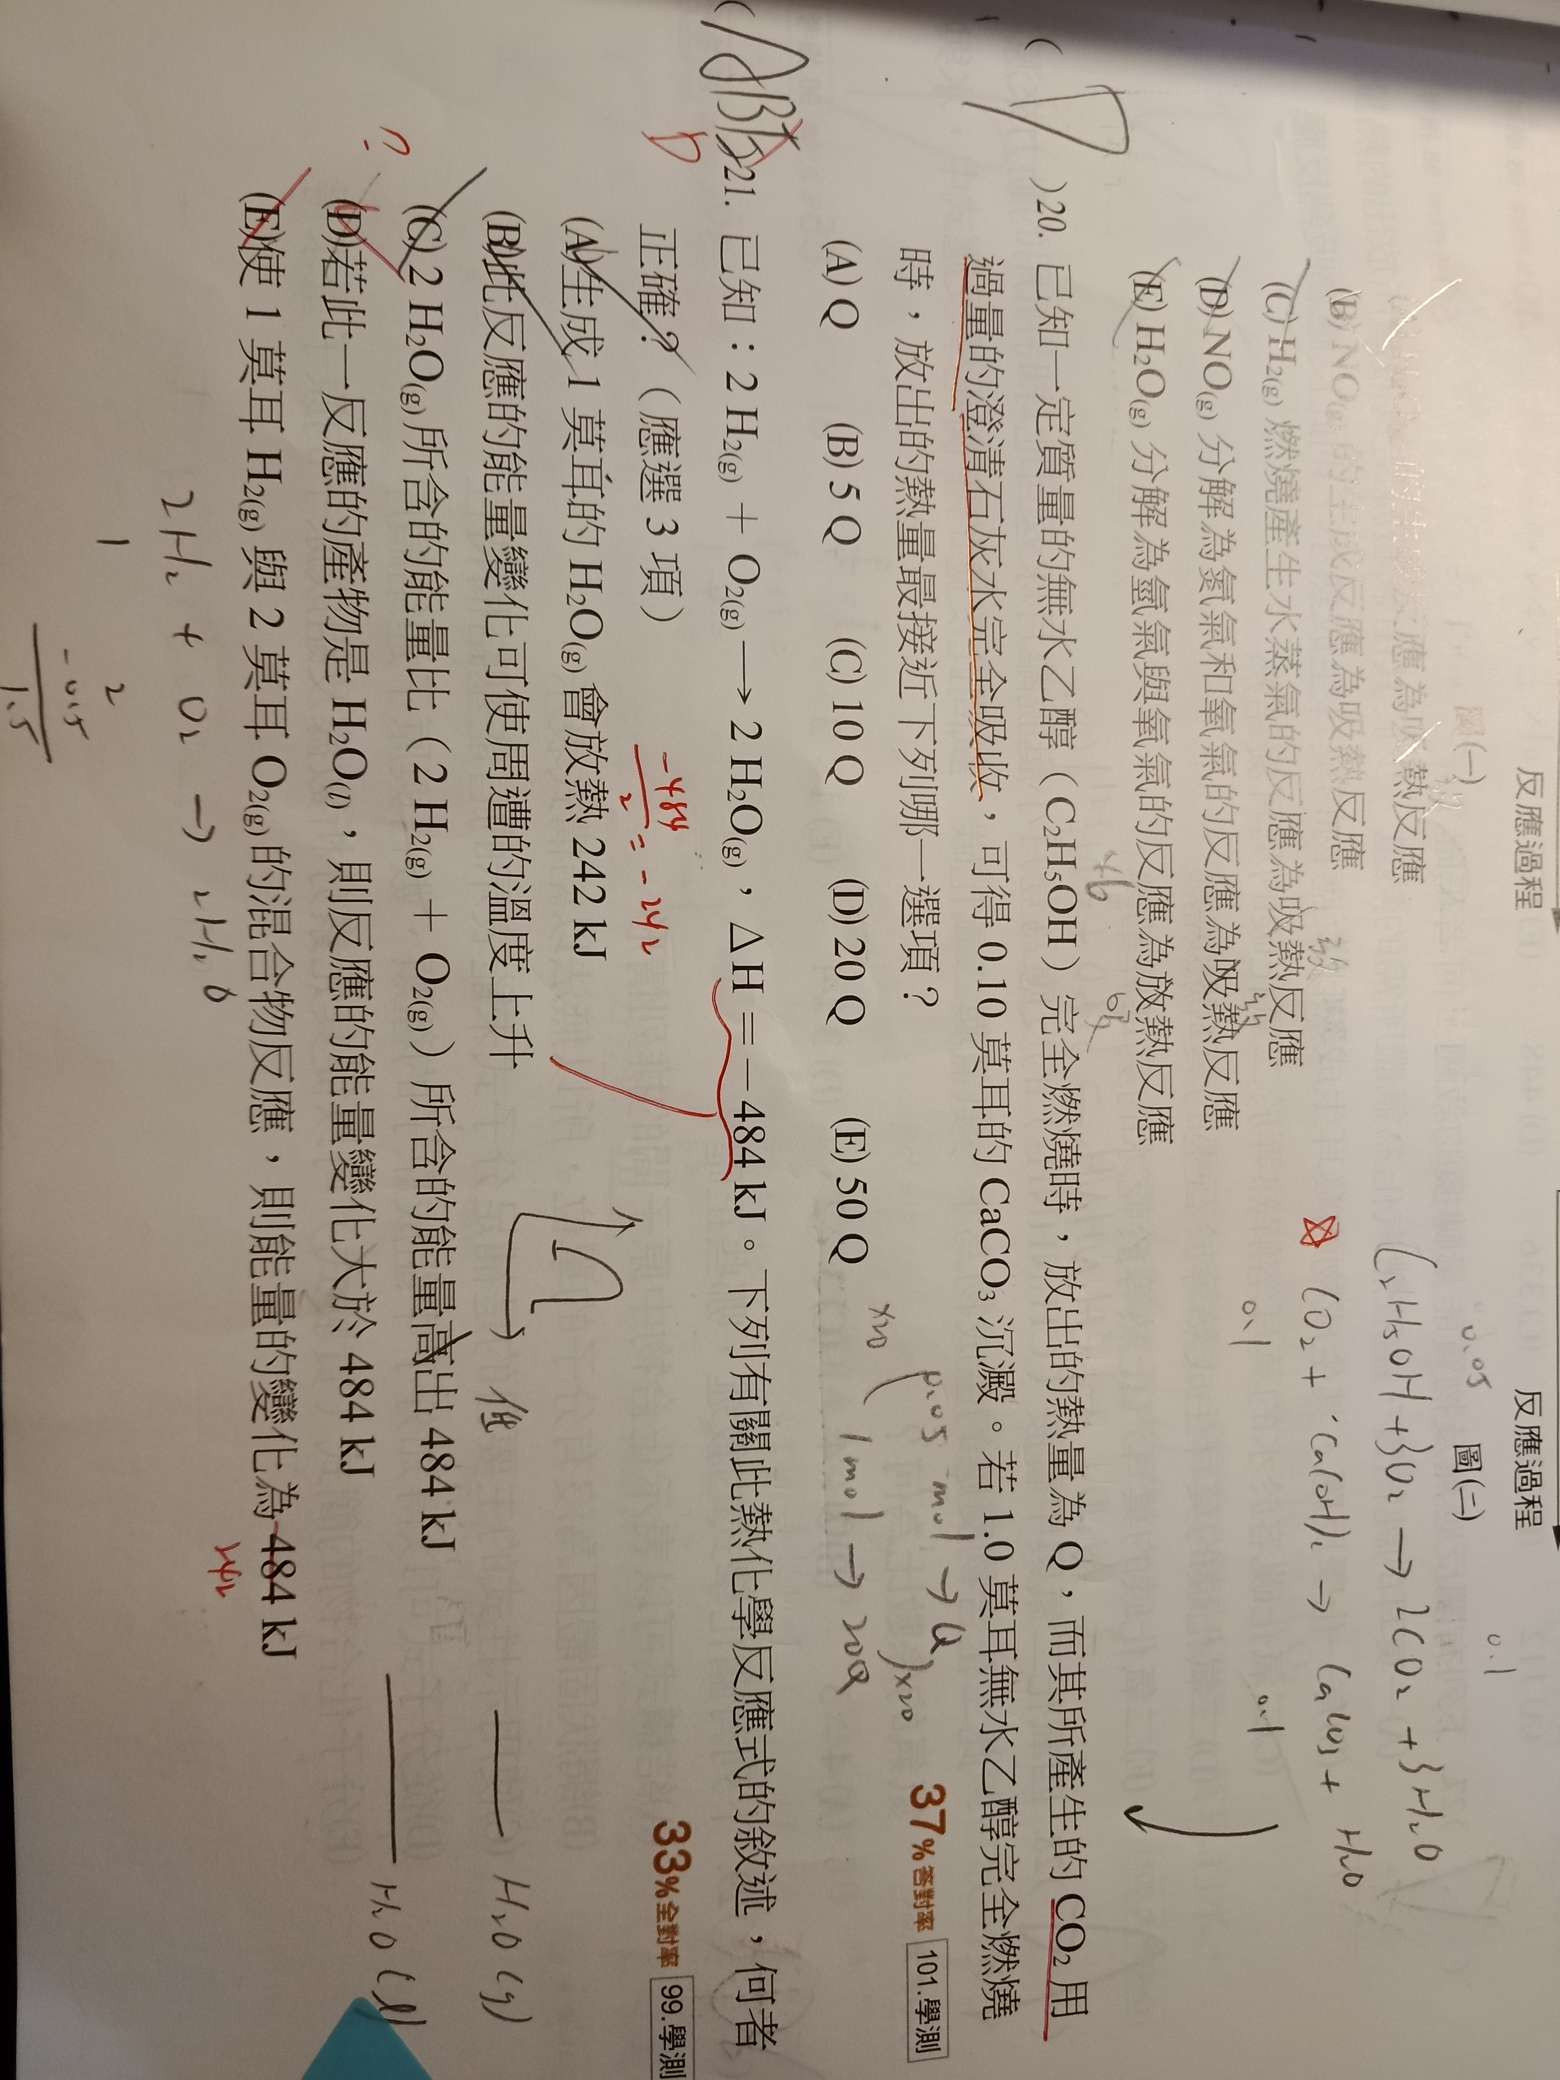 反應過程 反應過程
圖(一) 圖(二)
熱反應
(B) NO(g) 的生成反應為吸熱反應
(C) H₂(g) 燃燒產生水蒸氣的反應為吸熱反應
放
(D) NO(g) 分解為氮氣和氧氣的反應為吸熱反應
放
(E) H₂O(g) 分解為氫氣與氧氣的反應為放熱反應
吸
0.05 0.1
C₂H₅OH + 3O₂ → 2CO₂ + 3H₂O
CO₂ + Ca(OH)₂ → CaCO₃ + H₂O
0.1 0.1
( D )20. 已知一定質量的無水乙醇（C₂H₅OH）完全燃燒時，放出的熱量為 Q，而其所產生的 CO₂ 用
46
過量的澄清石灰水完全吸收，可得 0.10 莫耳的 CaCO₃ 沉澱。若 1.0 莫耳無水乙醇完全燃燒
時，放出的熱量最接近下列哪一選項？
37%答對率 101.學測
(A) Q (B) 5 Q (C) 10 Q (D) 20 Q (E) 50 Q
0.05 mol → Q
×20 ×20
1 mol → 20Q
( AB D 21. 已知：2 H₂(g) + O₂(g) → 2 H₂O(g)，△H = −484 kJ。下列有關此熱化學反應式的敘述，何者
正確？（應選 3 項）
33%全對率 99.學測
-484/2 = -242
(A)生成 1 莫耳的 H₂O(g) 會放熱 242 kJ
(B)此反應的能量變化可使周遭的溫度上升
(C) 2 H₂O(g) 所含的能量比（2 H₂(g) + O₂(g)）所含的能量高出 484 kJ
低
H₂O (g)
? (D)若此一反應的產物是 H₂O(l)，則反應的能量變化大於 484 kJ
H₂O (l)
(E)使 1 莫耳 H₂(g) 與 2 莫耳 O₂(g) 的混合物反應，則能量的變化為 484 kJ
242
2H₂ + O₂ → 2H₂O
1 2
-0.5
1.5